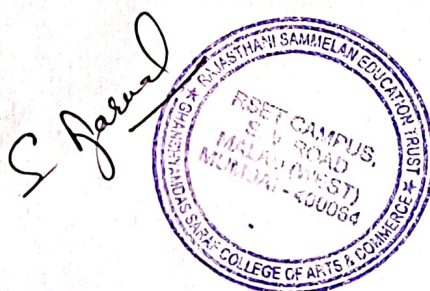 RAJASTHANI SAMMELAN EDUCATION TRUST
GHANSHYAMDAS SARAF COLLEGE OF ARTS & COMMERCE
RSET CAMPUS,
S. V. ROAD
MALAD (WEST)
MUMBAI - 400064